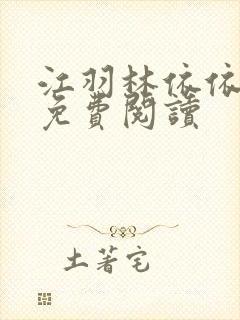 江羽林依依
免費閱讀
土著宅